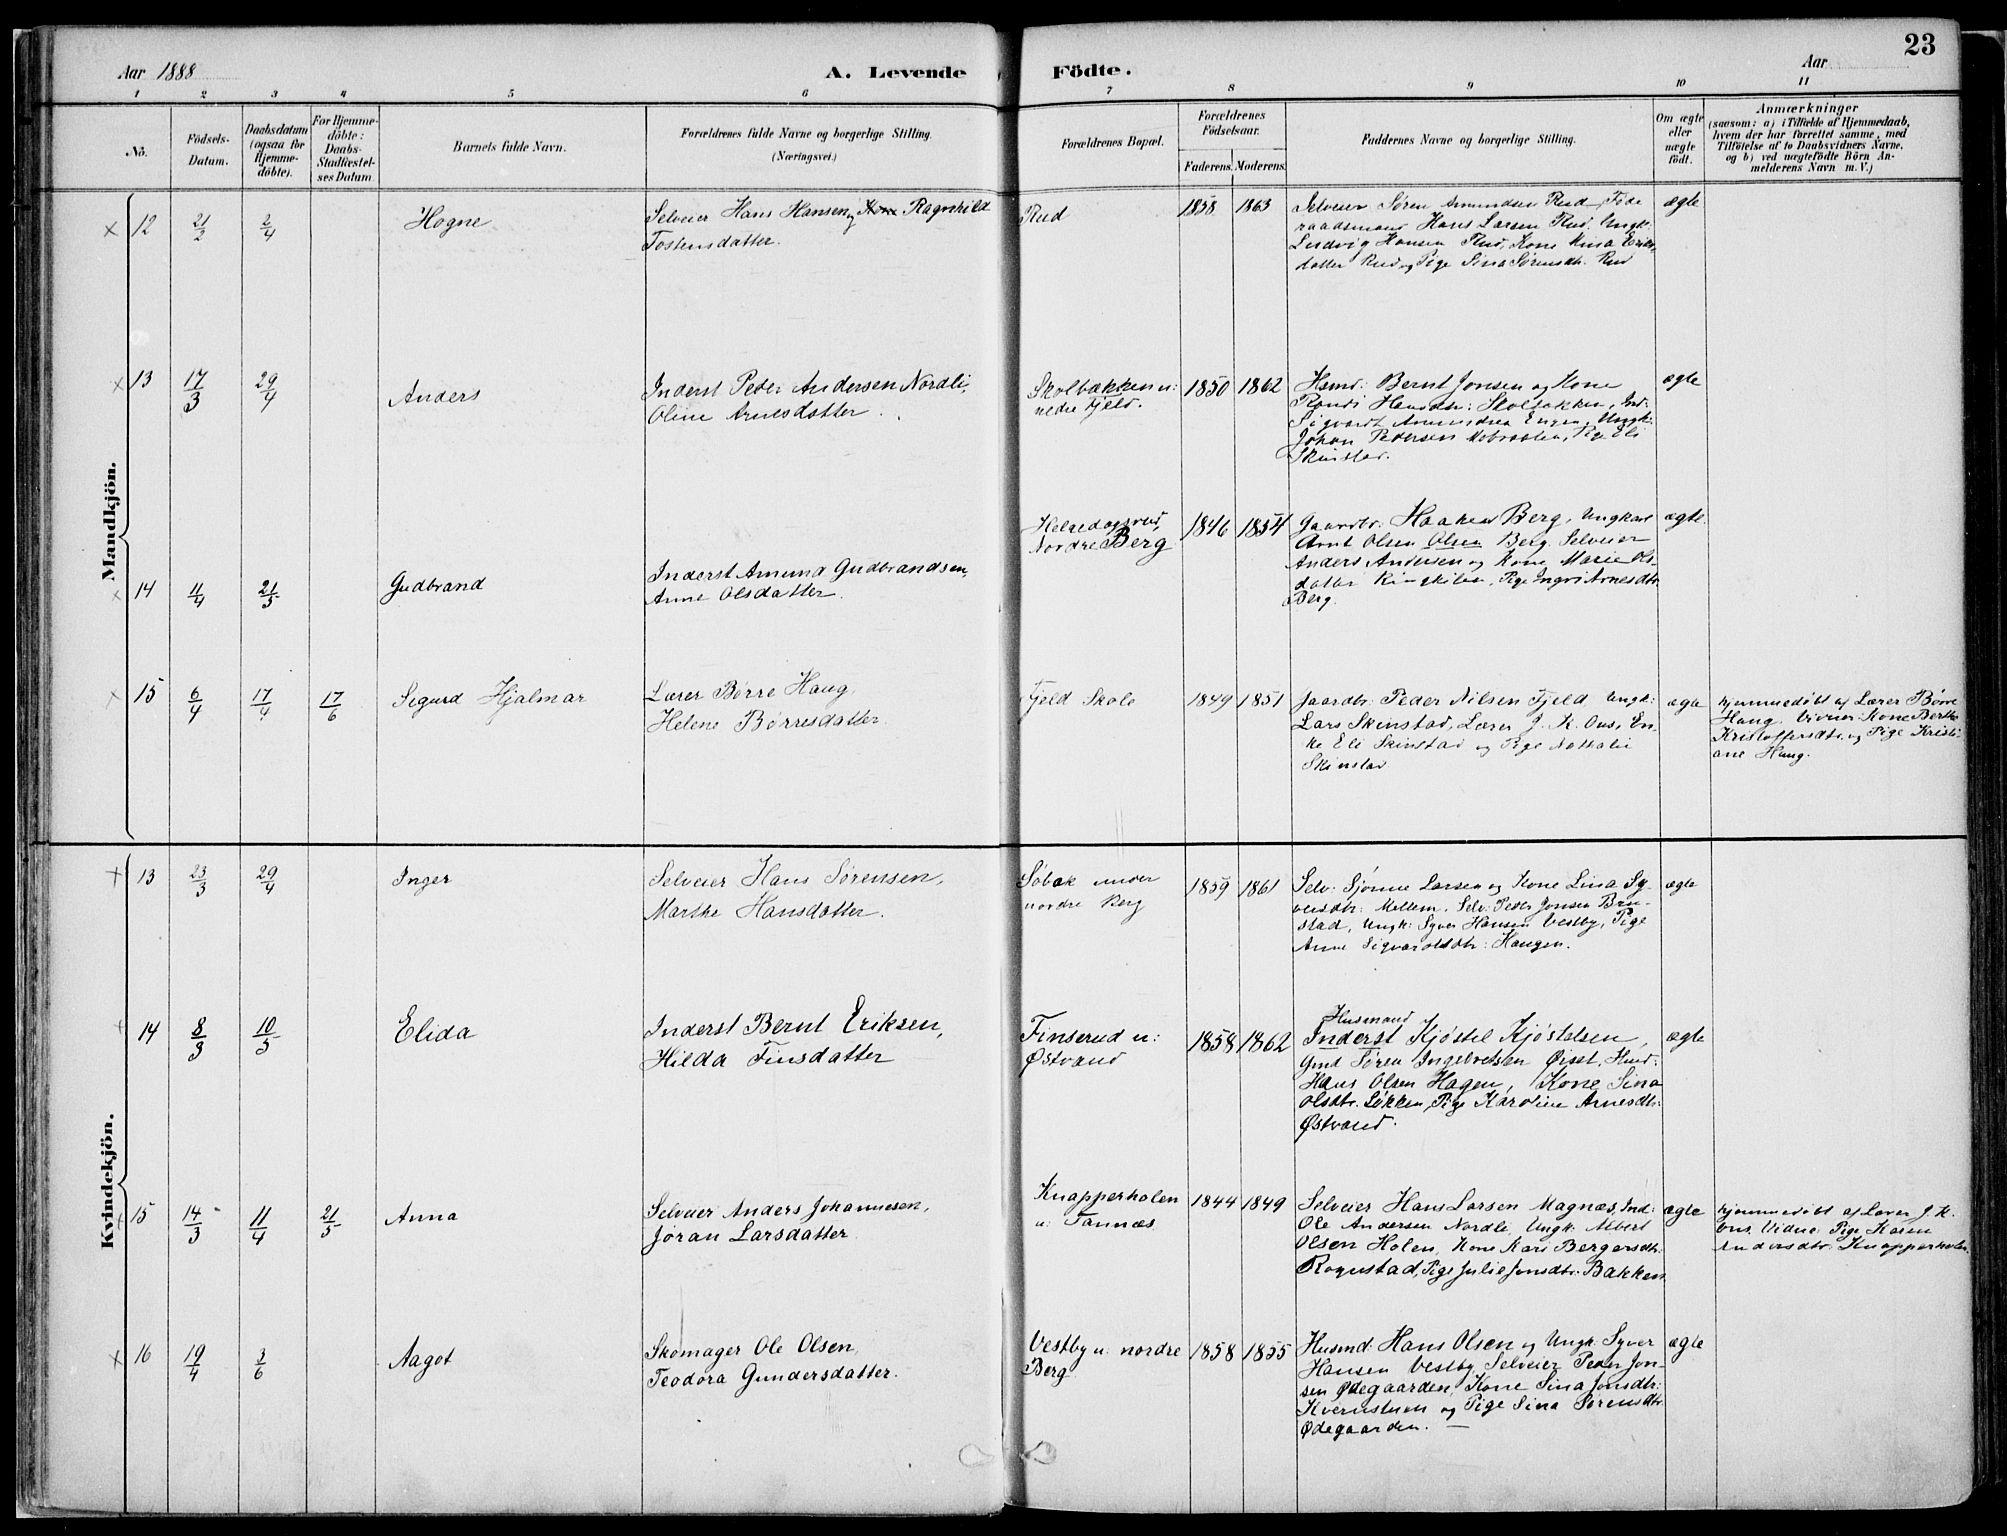 Aar 1888
A. Levende Födte.
Aar
23
1 2 3 4 5 6 7 8 9 10 11
No.
Födsels-
Datum.
Daabsdatum
(ogsaa for
Hjemme-
döbte).
For Hjemme-
döbte:
Daabs-
Stadfæstel-
ses Datum.
Barnets fulde Navn.
Forældrenes fulde Navne og borgerlige Stilling.
(Næringsvei.)
Forældrenes Bopæl.
Forældrenes
Födselsaar.
Faderens. Moderens.
Faddernes Navne og borgerlige Stilling.
Om ægte
eller
uægte
födt.
Anmærkninger
(saasom: a) i Tilfælde af Hjemmedaab,
hvem der har forrettet samme, med
Tilföielse af to Daabsvidners Navne,
og b) ved uægtefödte Börn An-
melderens Navn m. V.)
Mandkjön.
12 21/2 2/4 Hogne
Selveier Hans Hansen og Kone Ragnhild
Tostensdatter.
Rud
1858 1863
Selveier Søren Amundsen Rud, Föde
raadsmand Hans Larsen Rud, Ungk.
Ludvig Hansen Rud, Kone Stina Eriks-
datter Rud og Pige Sina Sørensdtr. Rud
ægte
13 17/3 29/4 Anders
Inderst Peder Andersen Nordli,
Oline Arnesdatter.
Skolbækken u:
nedre Fjeld.
1850 1862
Hsmd: Bernt Jonsen og Kone
Randi Hansdtr: Skolbækken, Ind:
Sigvardt Amundsen Engen, Ungk:
Johan Pedersen Mobraaten, Pige Eli
Skinstad.
ægte
14 11/4 21/5 Gudbrand
Inderst Amund Gudbrandsen,
Anne Olsdatter.
Helgedagsrud,
Nordre Berg
1846 1854
Gaardbr: Haaken Berg, Ungkarl
Arnt Olsen Olsen Berg, Selveier
Anders Andersen og Kone Marie Ols-
datter Ringkilen, Pige Ingri Arnesdtr.
Berg.
ægte
15 6/4 17/4 17/6 Sigurd Hjalmar
Lærer Børre Haug,
Helene Børresdatter.
Fjeld Skole
1849 1851
Gaardbr. Peder Nilsen Fjeld, Ungk:
Lars Skinstad, Lærer J. K. Ous, En-
ke Eli Skinstad og Pige Nathalie
Skinstad
ægte
hjemmedøbt af Lærer Børre
Haug. Vidner: Kone Berthe
Kristoffersdtr. og Pige Kristi-
ane Haug.
Kvindekjön.
13 23/3 29/4 Inger
Selveier Hans Sørensen,
Marthe Hansdatter.
Søbak under
nordre Berg
1859 1861
Selv: Sjønne Larsen og Kone Lina Sy-
versdtr: Mellem, Selv: Peder Jonsen Bru-
stad, Ungk: Syver Hansen Vestby, Pige
Anne Sigvardsdtr: Haugen.
ægte
14 8/3 10/5 Elida
Inderst Bernt Eriksen,
Hilda Finsdatter
Finserud u:
Østvand
1858 1862
Husmand
Inderst Kjøstel Kjøstelsen,
Gmd Søren Ingebretsen Ørset, Hmd:
Hans Olsen Hagen, Kone Sina
Olsdtr. Løkken, Pige Karoline Arnesdtr:
Østvand.
ægte
15 14/3 11/4 21/5 Anna
Selveier Anders Johannesen,
Jøran Larsdatter.
Knapperholen
u: Tannæs.
1844 1849
Selveier Hans Larsen Magnæs, Ind:
Ole Andersen Nordli, Ungk. Albert
Olsen Holen, Kone Kari Bergersdtr.
Rognstad, Pige Julie Jonsdtr. Bakken
ægte
hjemmedøbt af Lærer J. K.
Ous, Vidne: Pige Karen
Andersdtr. Knapperholen.
16 19/4 3/6 Aagot
Skomager Ole Olsen,
Teodora Gundersdatter.
Vestby u: nordre
Berg
1858 1855
Husmd: Hans Olsen og Ungk: Syver
Hansen Vestby, Selveier Peder Jon-
sen Ødegaarden, Kone Sina Jonsdtr:
Kvernstuen og Pige Sina Sørensdtr.
Ødegaarden.
ægte